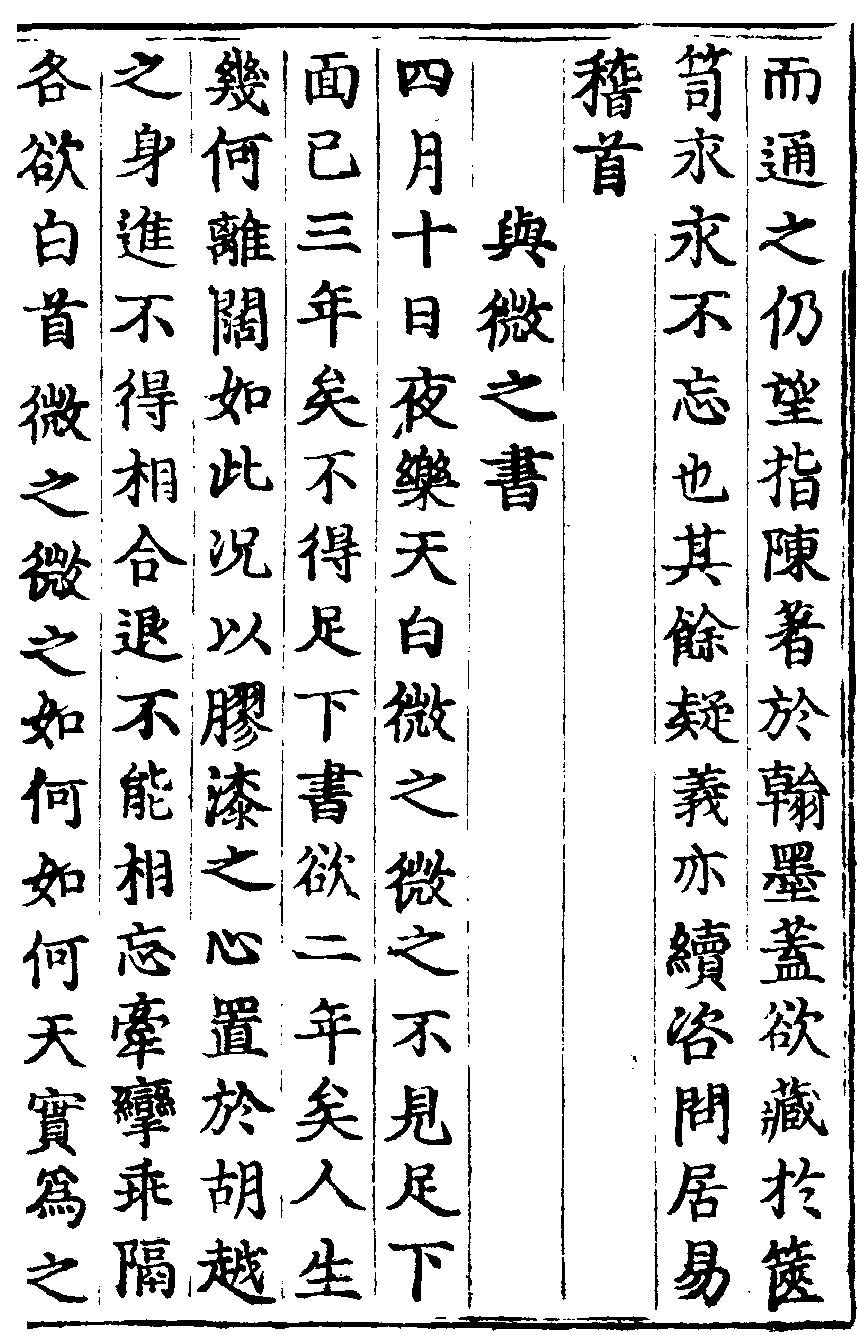 而通之仍望指陳著於翰墨蓋欲藏於篋
笥永永不忘也其餘疑義亦續咨問居易
稽首
與微之書
四月十日夜樂天白微之微之不見足下
面已三年矣不得足下書欲二年矣人生
幾何離闊如此況以膠漆之心置於胡越
之身進不得相合退不能相忘牽攣乖隔
各欲白首微之微之如何如何天實爲之